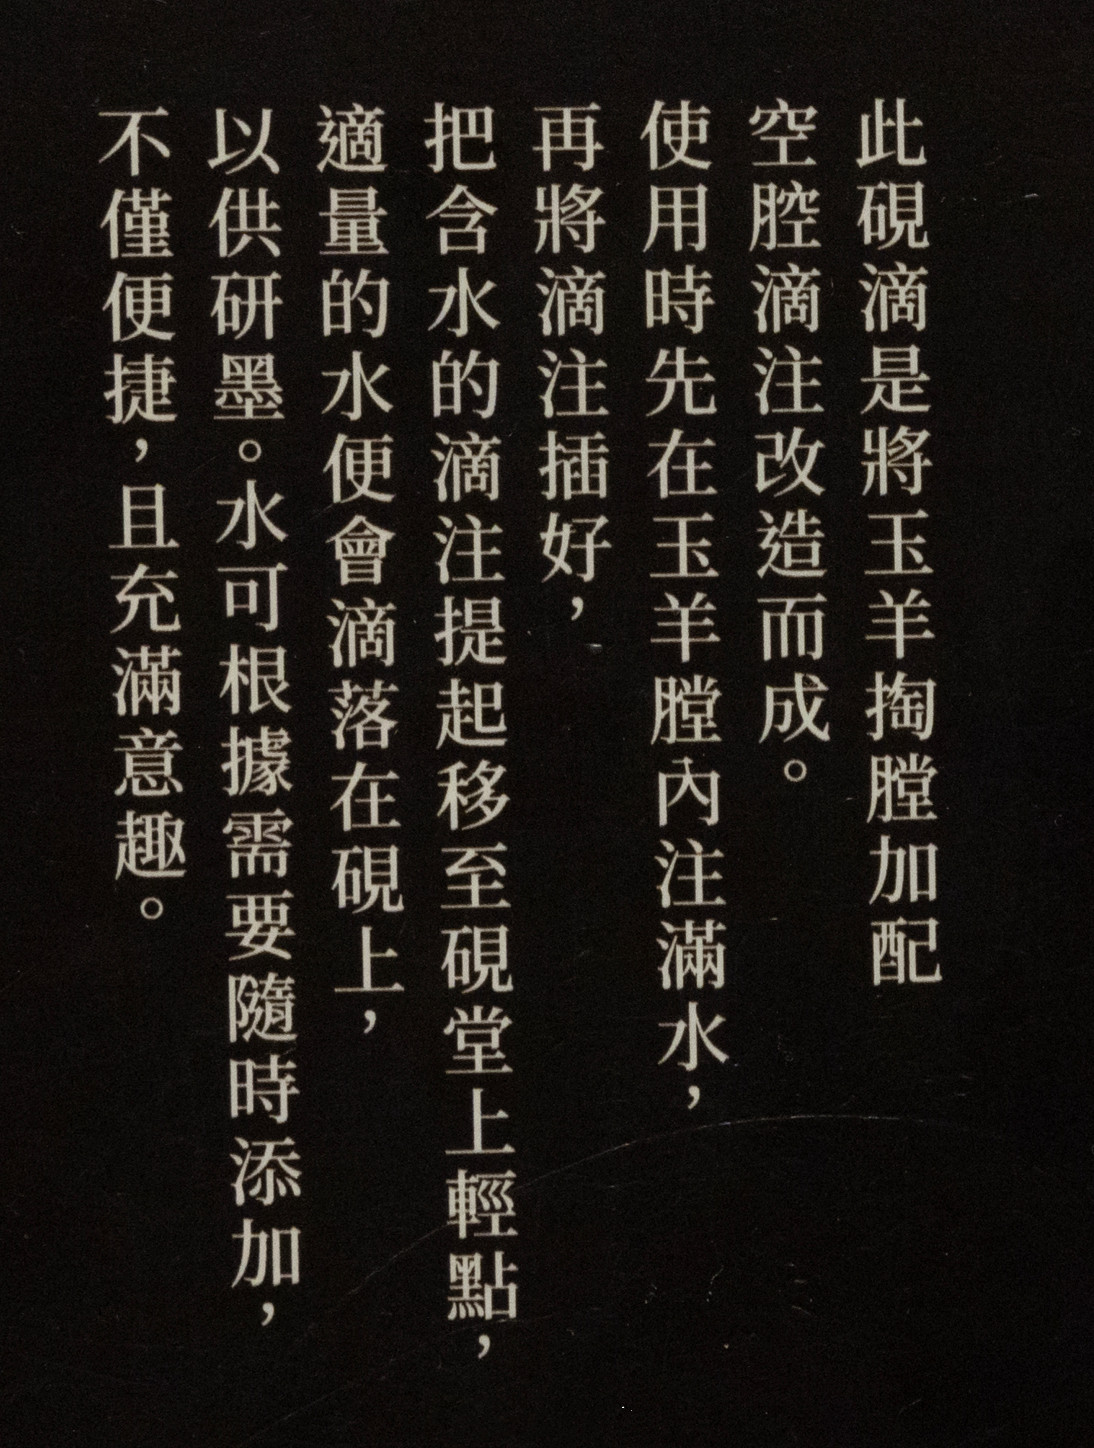 此硯滴是將玉羊掏膛加配
空腔滴注改造而成。
使用時先在玉羊膛內注滿水，
再將滴注插好，
把含水的滴注提起移至硯堂上輕點，
適量的水便會滴落在硯上，
以供研墨。水可根據需要隨時添加，
不僅便捷，且充滿意趣。